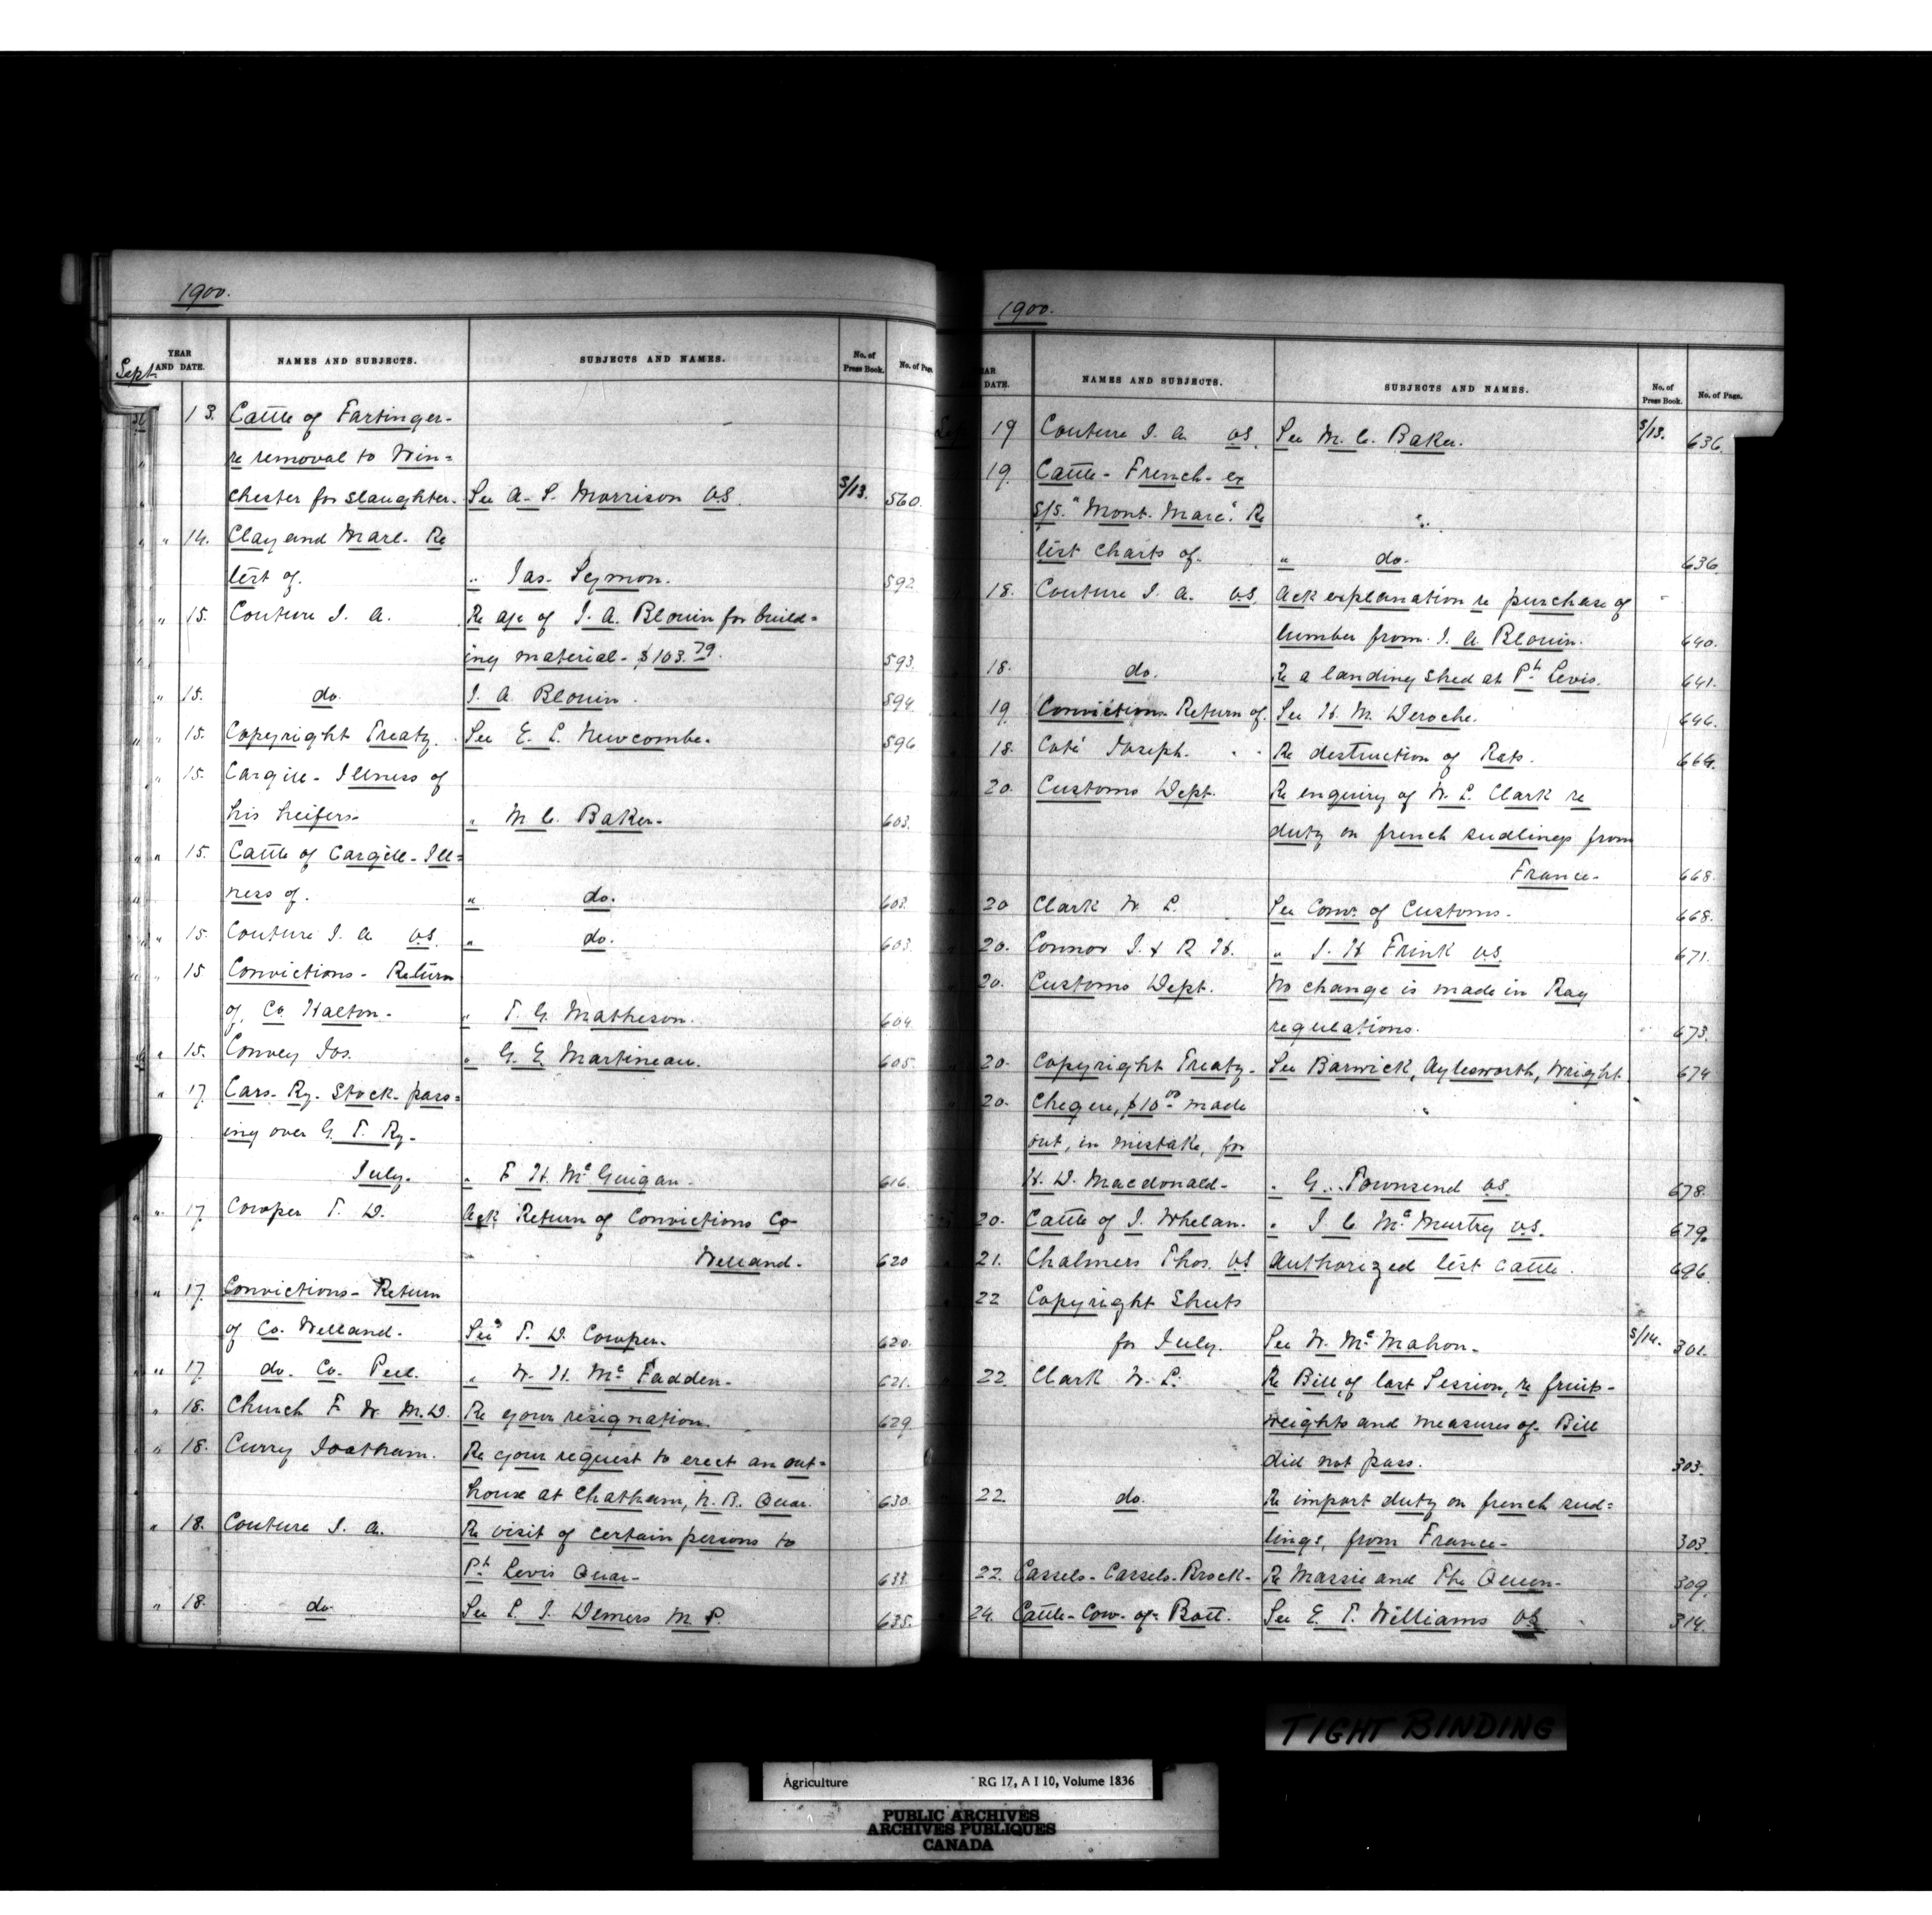 1900.
YEAR AND DATE. NAMES AND SUBJECTS. SUBJECTS AND NAMES. No. of Press Book. No. of Page.
Sept.
13. Cattle of Fartinger-
re removal to Win=
chester for slaughter. See A. S. Morrison V.S. 5/13. 560.
" 14. Clay and Marl. Re
list of. " Jas. Seymon. 592
" 15. Couture J. A. Re a/c of J. A. Blouin for build=
ing material - $103.79. 593.
" 15. do. J. A. Blouin. 594.
" 15. Copyright Treaty. See E. L. Newcombe. 596
" 15. Cargill - Illness of
his heifers. " M. C. Baker. 603.
" 15. Cattle of Cargill - Ill=
ness of. " do. 603.
" 15. Couture J. A. V.S. " do. 603.
" 15 Convictions - Return
of Co. Halton. " T. G. Matheson. 604
" 15. Convey Jos. " G. E. Martineau. 605.
" 17. Cars. Ry. Stock - pass=
ing over G. T. Ry.
July. " F. H. McGuigan. 616.
" 17. Cowper T. D. Ack Return of Convictions Co-
Welland. 620
" 17. Convictions - Return
of Co. Welland. See T. D. Cowper. 620.
" 17. do. Co. Peel. " W. H. McFadden. 621.
" 18. Church F. W. M.D. Re your resignation. 629.
" 18. Curry Joatham. Re your request to erect an out=
house at Chatham, N. B. Quar. 630.
" 18. Couture J. A. Re visit of certain persons to
Pt. Levis Quar. 633.
" 18. do See L. J. Demers M.P. 635.
1900.
YEAR AND DATE. NAMES AND SUBJECTS. SUBJECTS AND NAMES. No. of Press Book. No. of Page.
Sept. 19 Couture J. A. V.S. See M. C. Baker. 5/13. 636.
19. Cattle - French - ex
S/S. "Mont. Marc". Re
list charts of. " do. 636.
18. Couture J. A. V.S. Ack explanation re purchase of
lumber from J. A. Blouin. 640.
18. do. Re a landing shed at Pt. Levis. 641.
19. Conviction Return of. See H. M. Deroche. 646.
18. Coté Joseph. Re destruction of Rats. 664.
20. Customs Dept. Re enquiry of W. L. Clark re
duty on french sudlings from
France. 668.
20 Clark W. L. See Comr. of Customs. 668.
20. Connor J. & R. H. " J. H. Frink V.S. 671.
20. Customs Dept. No change is made in Rag
regulations. 673.
20. Copyright Treaty. See Barwick, Aylesworth, Wright 674
20. Cheque, $10.00 made
out, in mistake, for
H. D. Macdonald. " G. Townsend V.S. 678.
20. Cattle of J. Whelan. " J. C. McMurtry V.S. 679.
21. Chalmers Thos. V.S. Authorized list cattle. 696.
22 Copyright Sheets
for July. See W. McMahon. 5/14. 301.
22. Clark W. L. Re Bill, of last Session, re fruit-
weights and measures of. Bill
did not pass. 303.
22. do. Re import duty on french sud=
lings, from France. 303.
22. Cassels - Cassels - Brock - Re Massie and The Queen. 309.
24. Cattle - Cow - of - Batt. See E. T. Williams V.S. 314.
TIGHT BINDING
Agriculture RG 17, A I 10, Volume 1836
PUBLIC ARCHIVES
ARCHIVES PUBLIQUES
CANADA